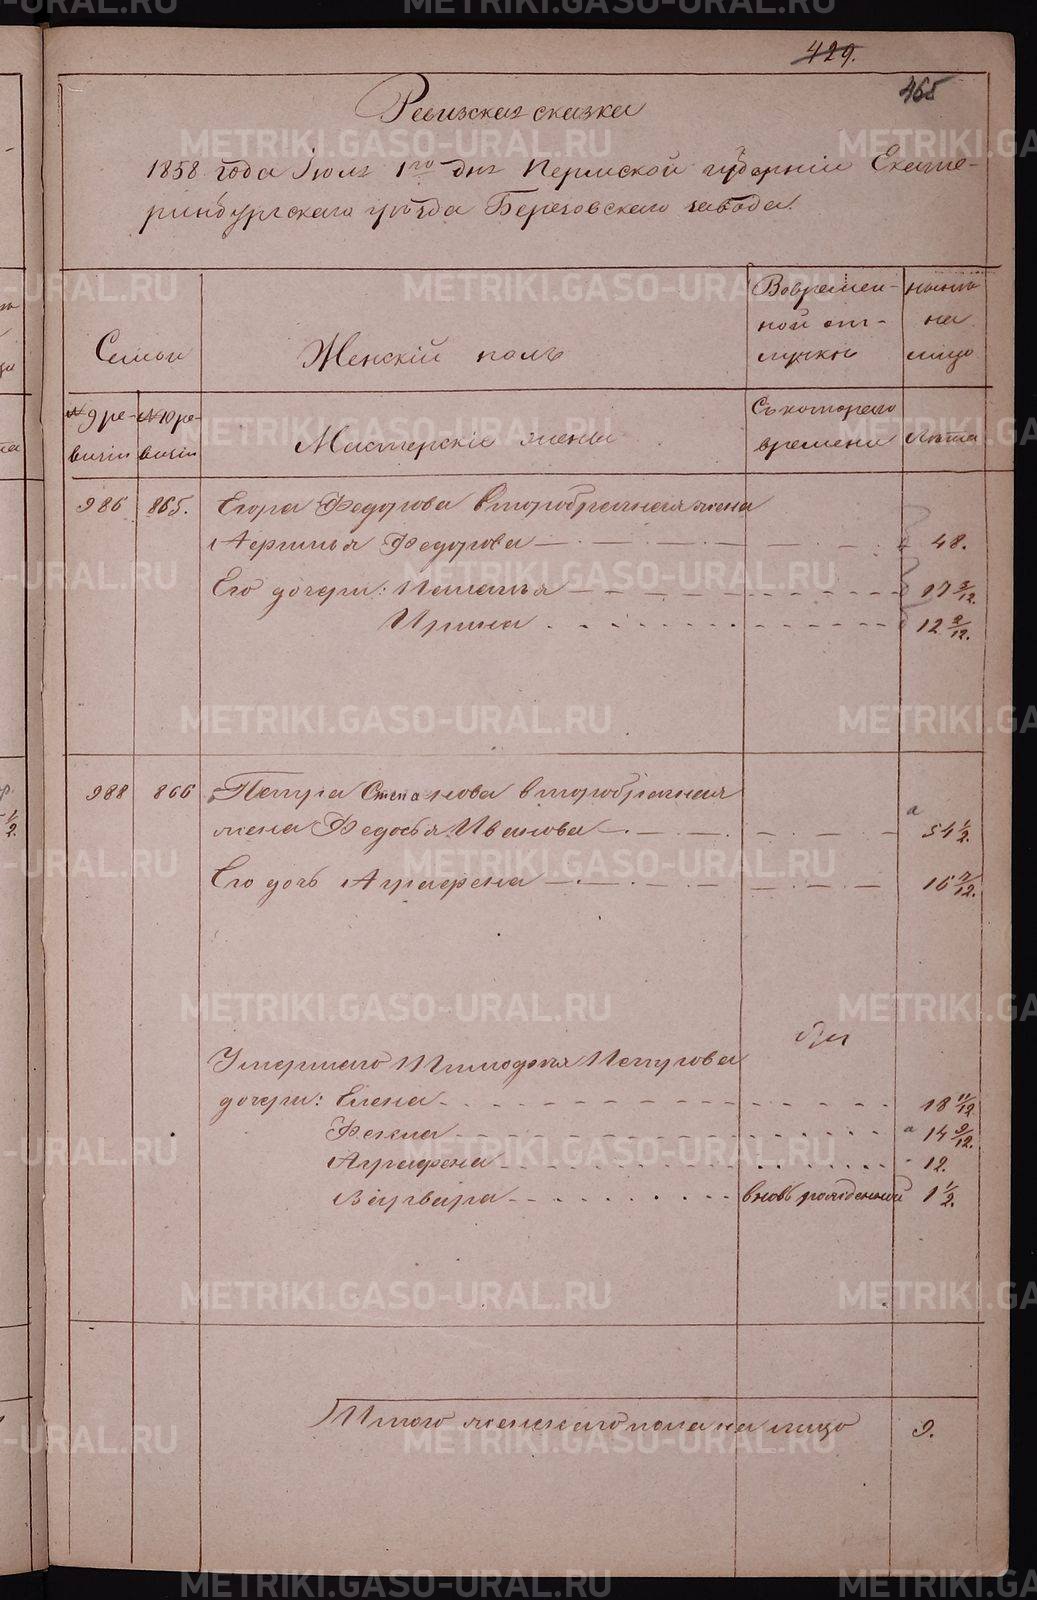 429.
465
Ревизская сказка
1858 года Июля 1го дня Пермской губернiи Екате-
ринбургскаго уѣзда Березовскаго завода.
Семьи
Женскiй полъ
Вовремен-
ной от-
лучки
нынѣ
на
лицо
№ 9 ре-
визiи
№ 10 ре-
визiи
Мастерскiе жены
Съ котораго
времени
Лѣта
986 865. Егора Федорова второбрачная жена
Афимья Федорова 48.
Его дочери: Наталья 17 3/12.
Ирина 12 2/12.
988 866 Петра Степанова второбрачная
жена Федосья Иванова 54 1/2.
Его дочь Аграфена 16 7/12.
Умершаго Тимофея Петрова
дочери: Елена 18 11/12
Фекла 14 9/12.
Аграфена 12.
Варвара вновь рожденная 1 1/2.
Итого женскаго пола на лицо 9.
METRIKI.GASO-URAL.RU